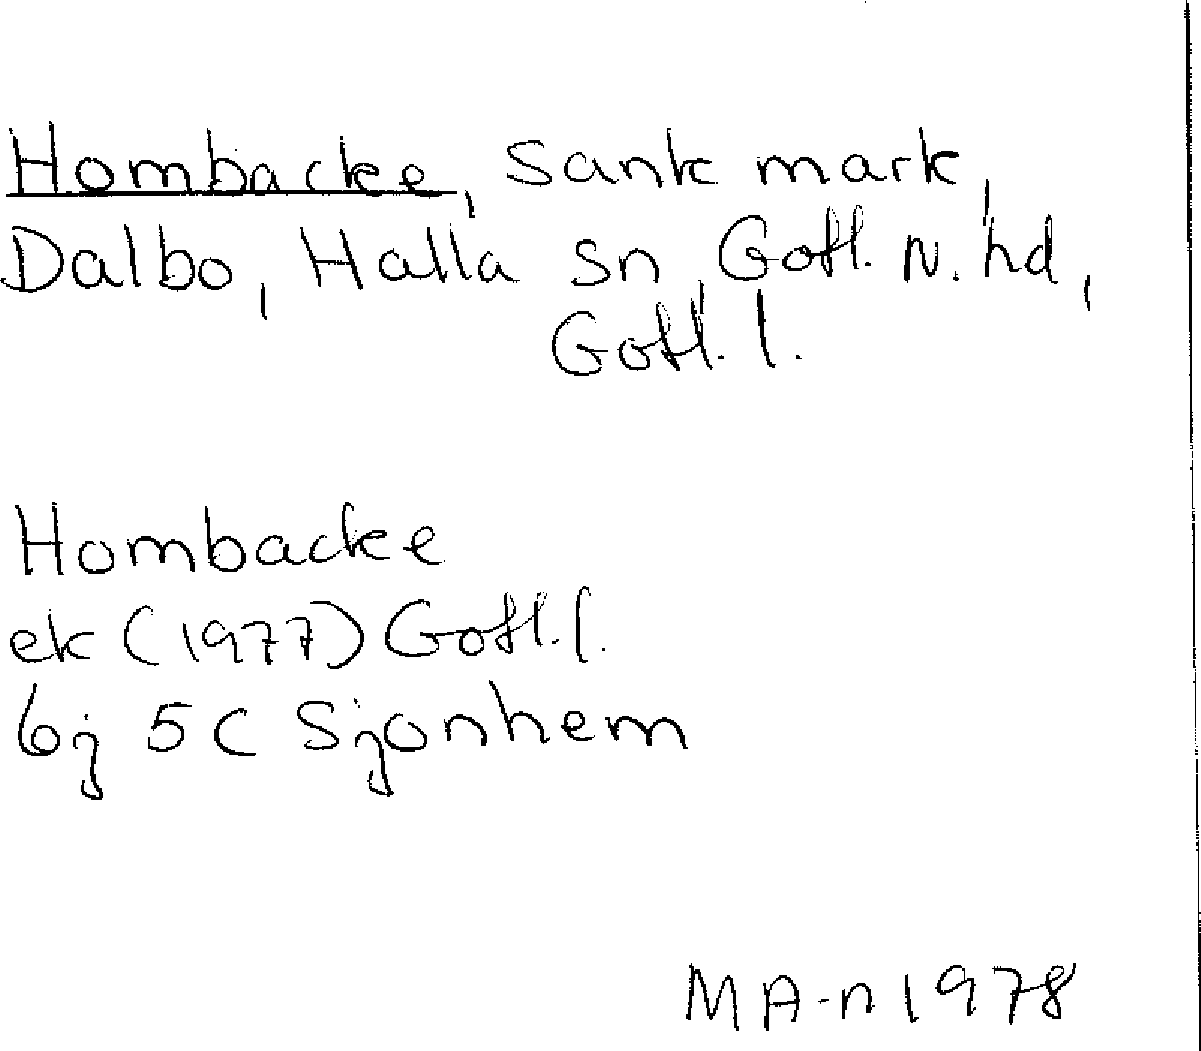 Hombacke, Sank mark,
Dalbo, Halla sn, Gotl. N. hd,
Gotl. l.
Hombacke
ek (1977) Gotl. l.
6j 5C Sjonhem
MA-n 1978